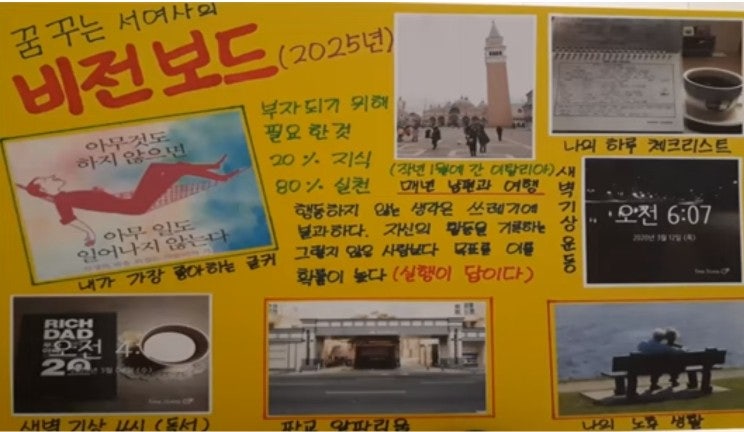 꿈 꾸는 서여사의
비전보드 (2025년)
부자되기 위해
필요한것
20% 지식
80% 실천
(작년 1월에 간 이탈리아)
매년 남편과 여행
행동하지 않는 생각은 쓰레기에
불과하다. 자신의 활동을 기록하는
그렇지 않은 사람보다 목표를 이룰
확률이 높다 (실행이 답이다)
아무것도
하지 않으면
아무 일도
일어나지 않는다
내가 가장 좋아하는 글귀
나의 하루 체크리스트
새벽기상운동
오전 6:07
2020년 3월 12일 (목)
Time Stamp
RICH
DAD
오전 4
20
Time Stamp
새벽 기상 4시 (독서)
판교
나의 노후 생활